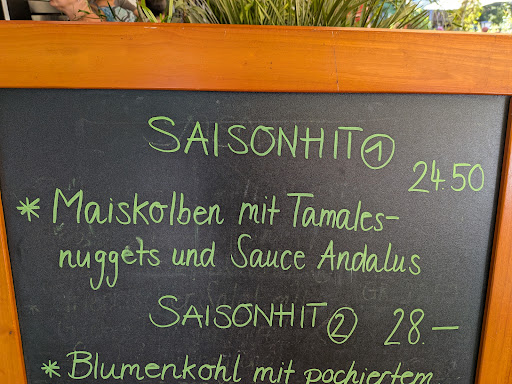 SAISONHIT ①
24.50
* Maiskolben mit Tamales-
nuggets und Sauce Andalus
SAISONHIT ② 28.—
* Blumenkohl mit pochiertem